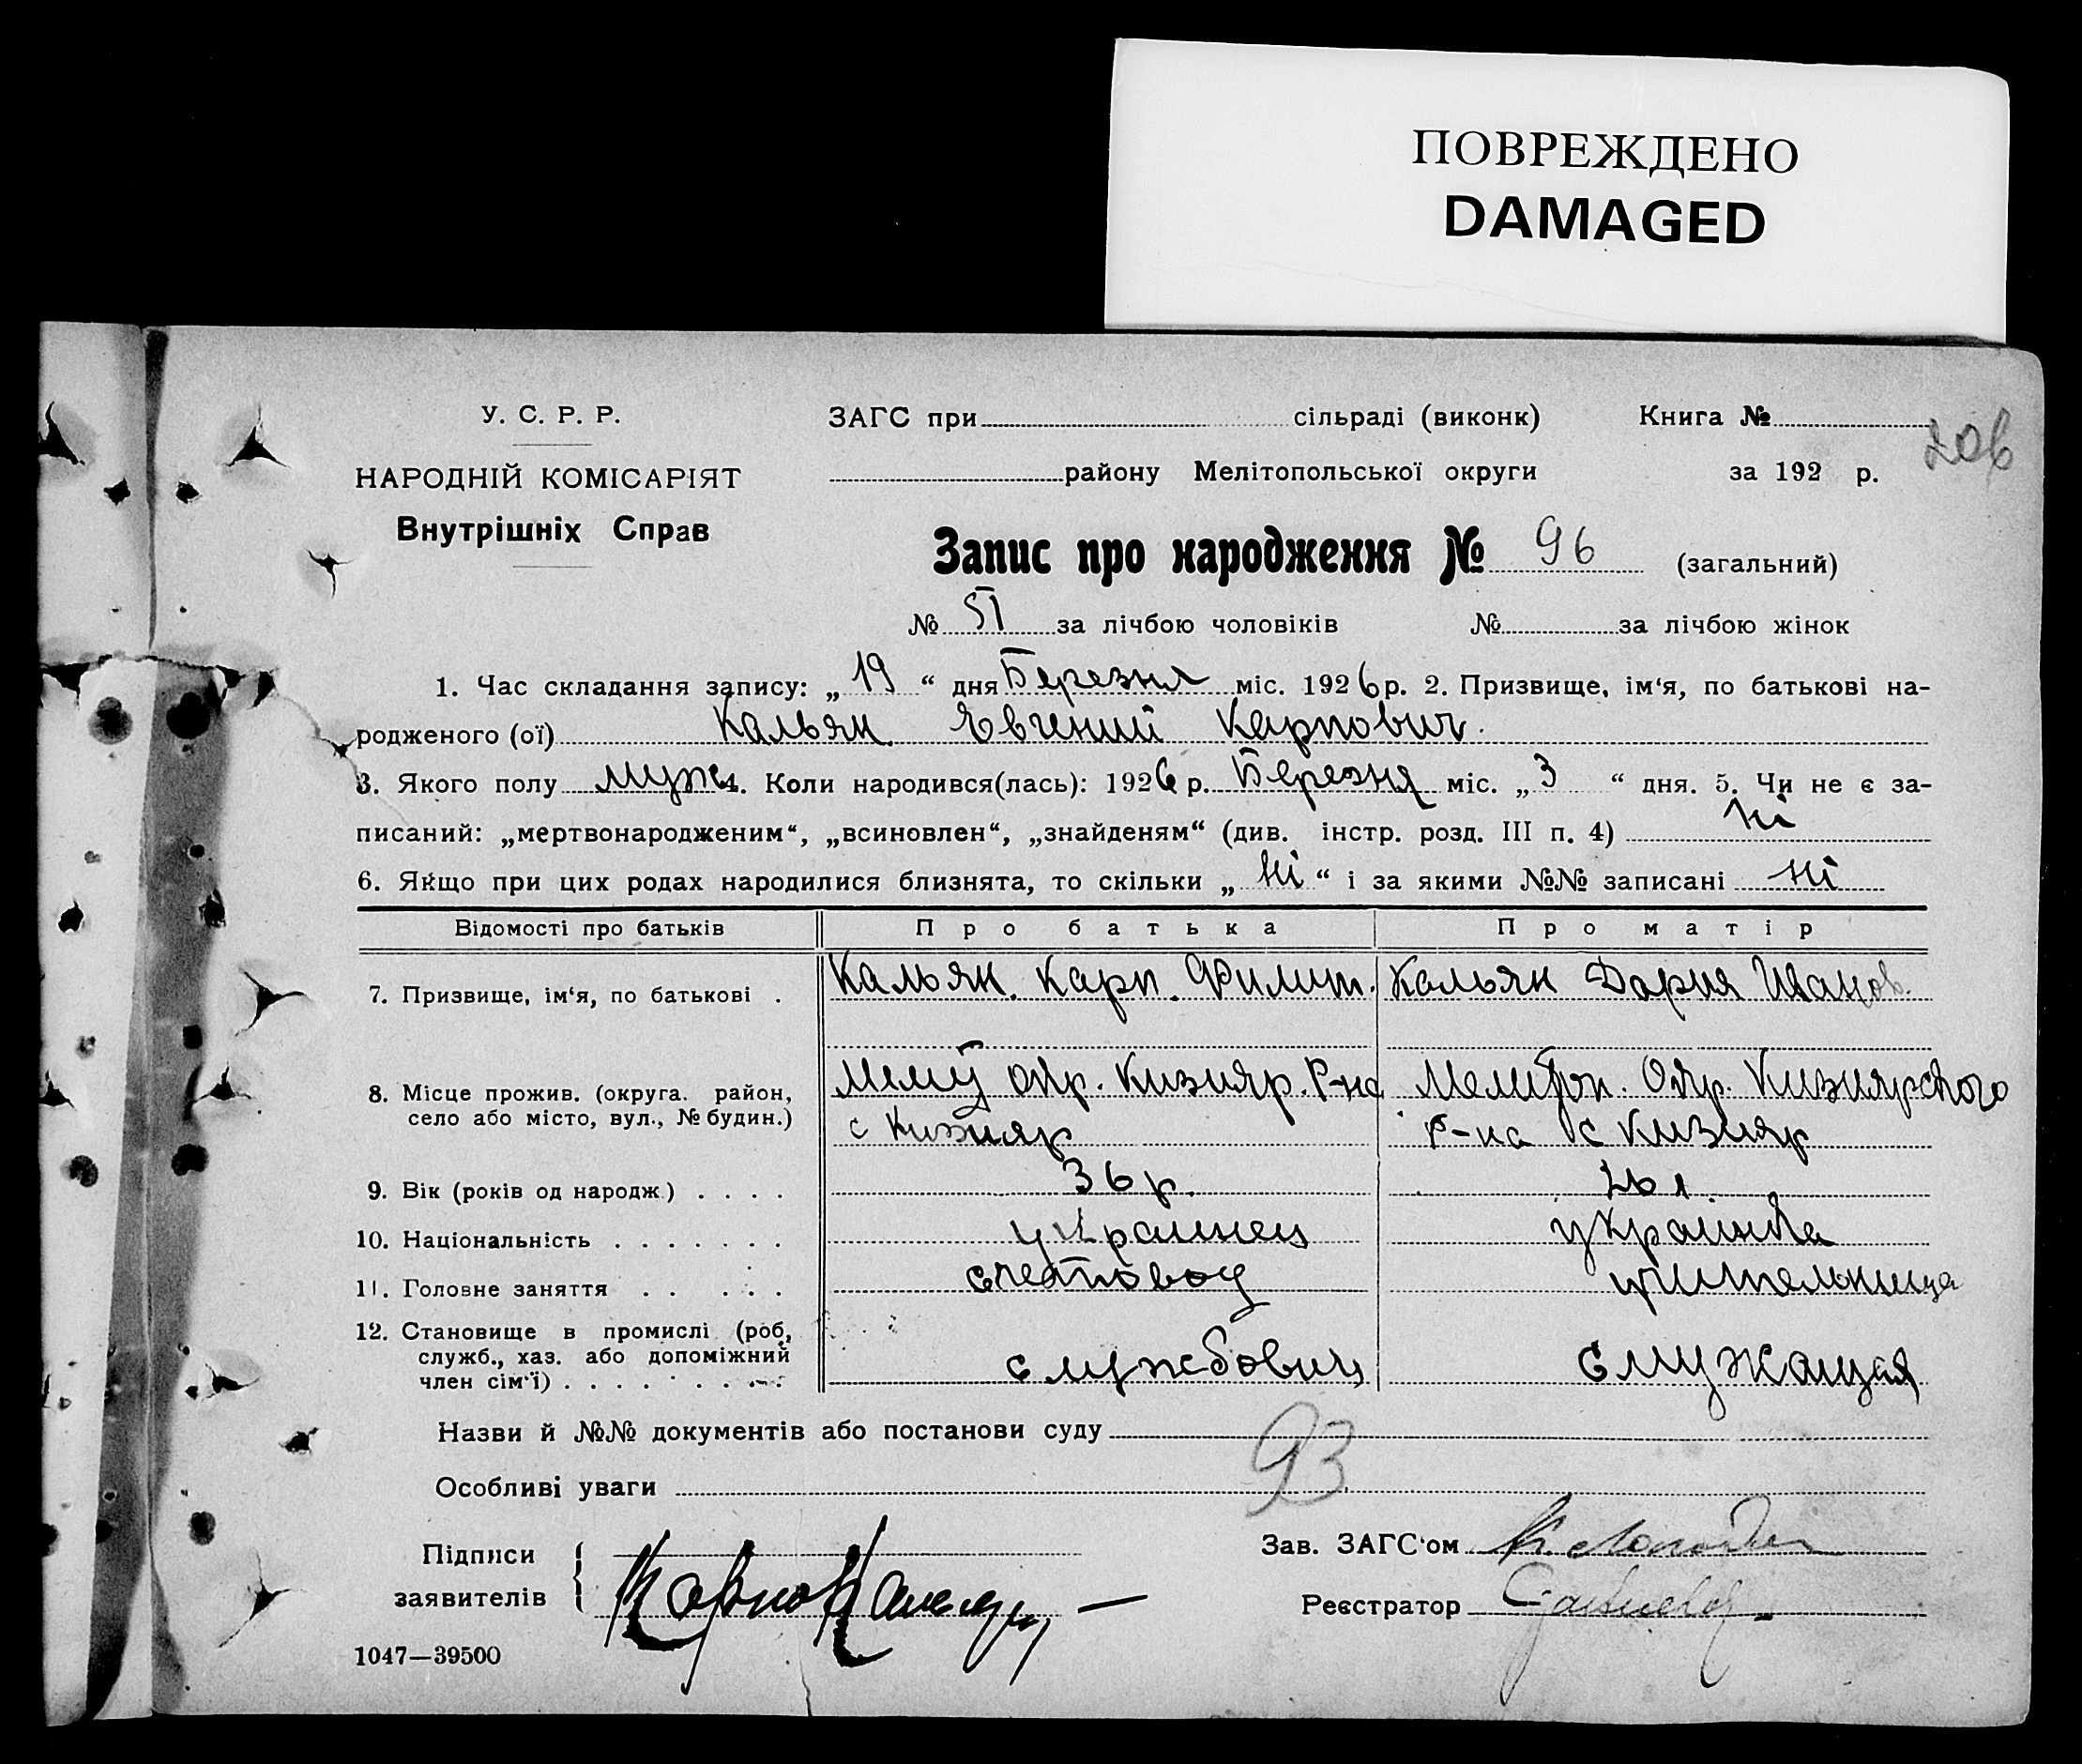 ПОВРЕЖДЕНО
DAMAGED
У. С. Р. Р.
НАРОДНІЙ КОМІСАРІЯТ
Внутрішніх Справ
ЗАГС при сільраді (виконк) Книга №
206
району Мелітопольської округи за 192 р.
Запис про народження № 96 (загальний)
№ 51 за лічбою чоловіків № за лічбою жінок
1. Час складання запису: „ 19 “ дня Березня міс. 1926 р. 2. Призвище, ім‘я, по батькові на-
родженого (ої) Кальян Евгений Карпович.
3. Якого полу муж 4. Коли народився(лась): 1926 р. Березня міс. „ 3 “ дня. 5. Чи не є за-
писаний: „мертвонародженим“, „всиновлен“, „знайденям“ (див. інстр. розд. III п. 4) ні
6. Якщо при цих родах народилися близнята, то скільки „ ні “ і за якими №№ записані ні
Відомості про батьків Про батька Про матір
7. Призвище, ім‘я, по батькові . Кальян Карп Филип. Кальян Дария Иванов.
8. Місце прожив. (округа. район, Окр. Кизияр. Р-на Мелитоп. Окр. Кизиярского
село або місто, вул., № будин.) с Кизияр Р-на с Кизияр
9. Вік (років од народж.) . . . . 36 р. 26 л.
10. Національність . . . . . . . украинец украинка
11. Головне заняття . . . . . счетовод учительница
12. Становище в промислі (роб,
служб., хаз. або допоміжний службовиц служащая
член сім‘ї) . . . . . . . . .
Назви й №№ документів або постанови суду
93
Особливі уваги
Підписи
заявителів
Зав. ЗАГС‘ом
Реєстратор
1047—39500